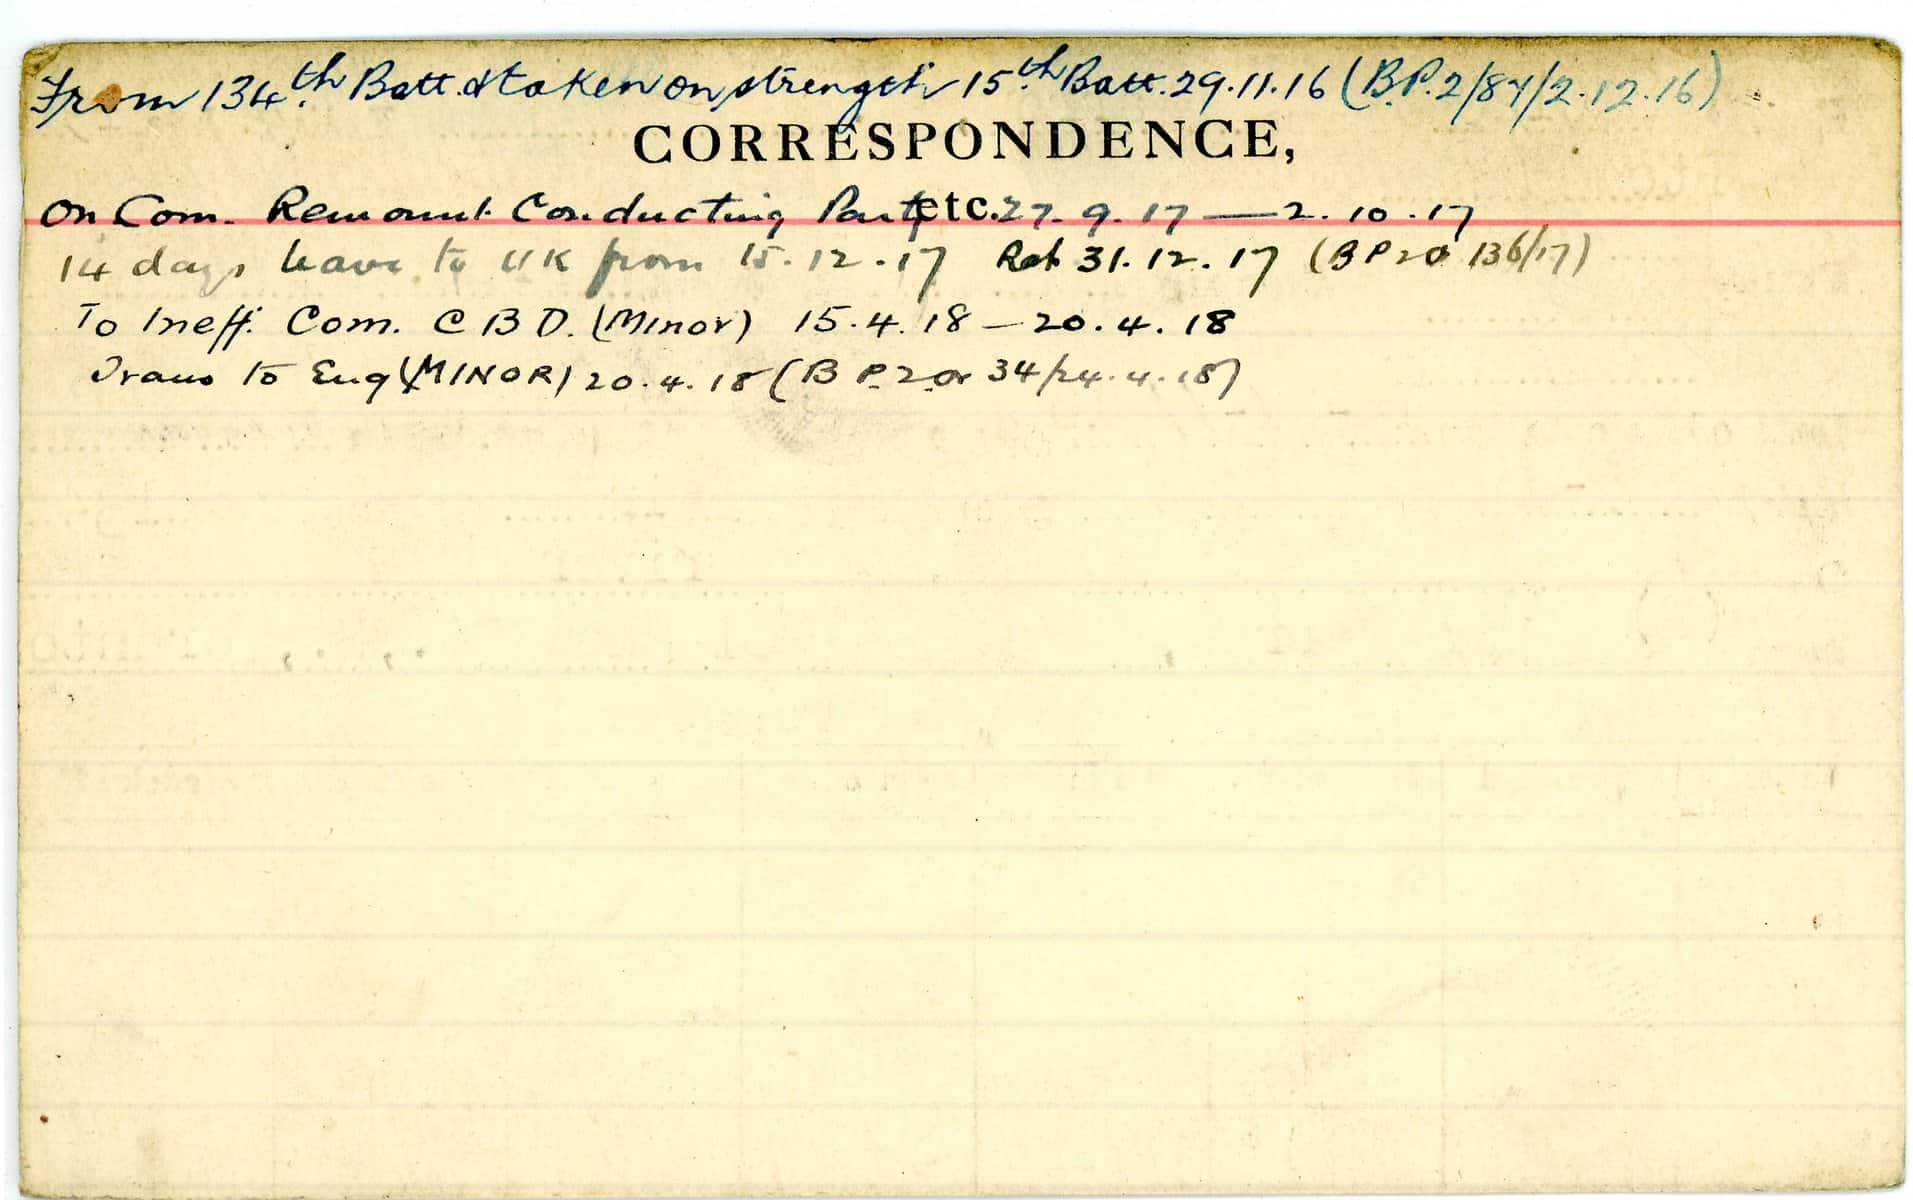 From 134th Batt. & taken on strength 15th Batt. 29.11.16 (B.P.2/87/2.12.16)
CORRESPONDENCE,
On Com. Remount Conducting Party etc. 27.9.17 — 2.10.17
14 days leave to UK from 15.12.17 Ret 31.12.17 (B P 2 o 136/17)
To Ineff. Com. C B D. (Minor) 15.4.18 — 20.4.18
Trans to Eng (MINOR) 20.4.18 (B P. 2 or 34/24.4.18)